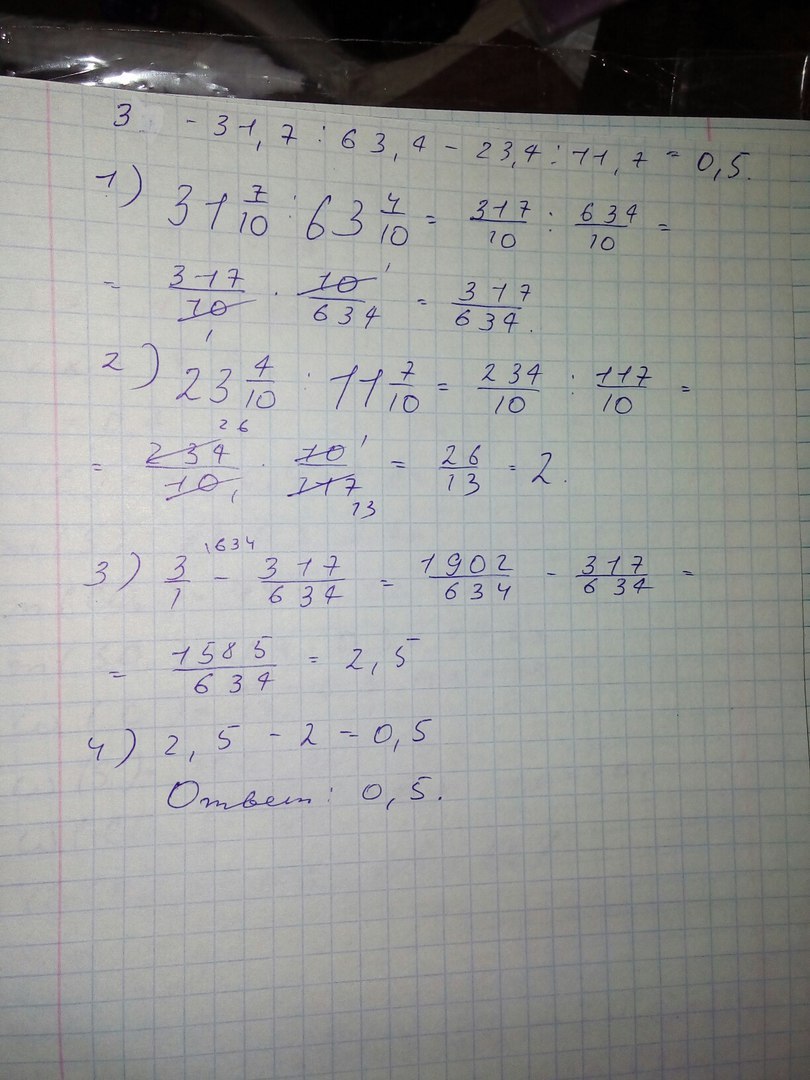 3 - 31,7 : 63,4 - 23,4 : 11,7 = 0,5.
1) 31 7/10 : 63 4/10 = 317/10 : 634/10 =
= 317/10 1 · 10 1/634 = 317/634.
2) 23 4/10 : 11 7/10 = 234/10 : 117/10 =
= 234 26/10 1 · 10 1/117 13 = 26/13 = 2.
3) 3/1 \634 - 317/634 = 1902/634 - 317/634 =
= 1585/634 = 2,5
4) 2,5 - 2 = 0,5
Ответ: 0,5.